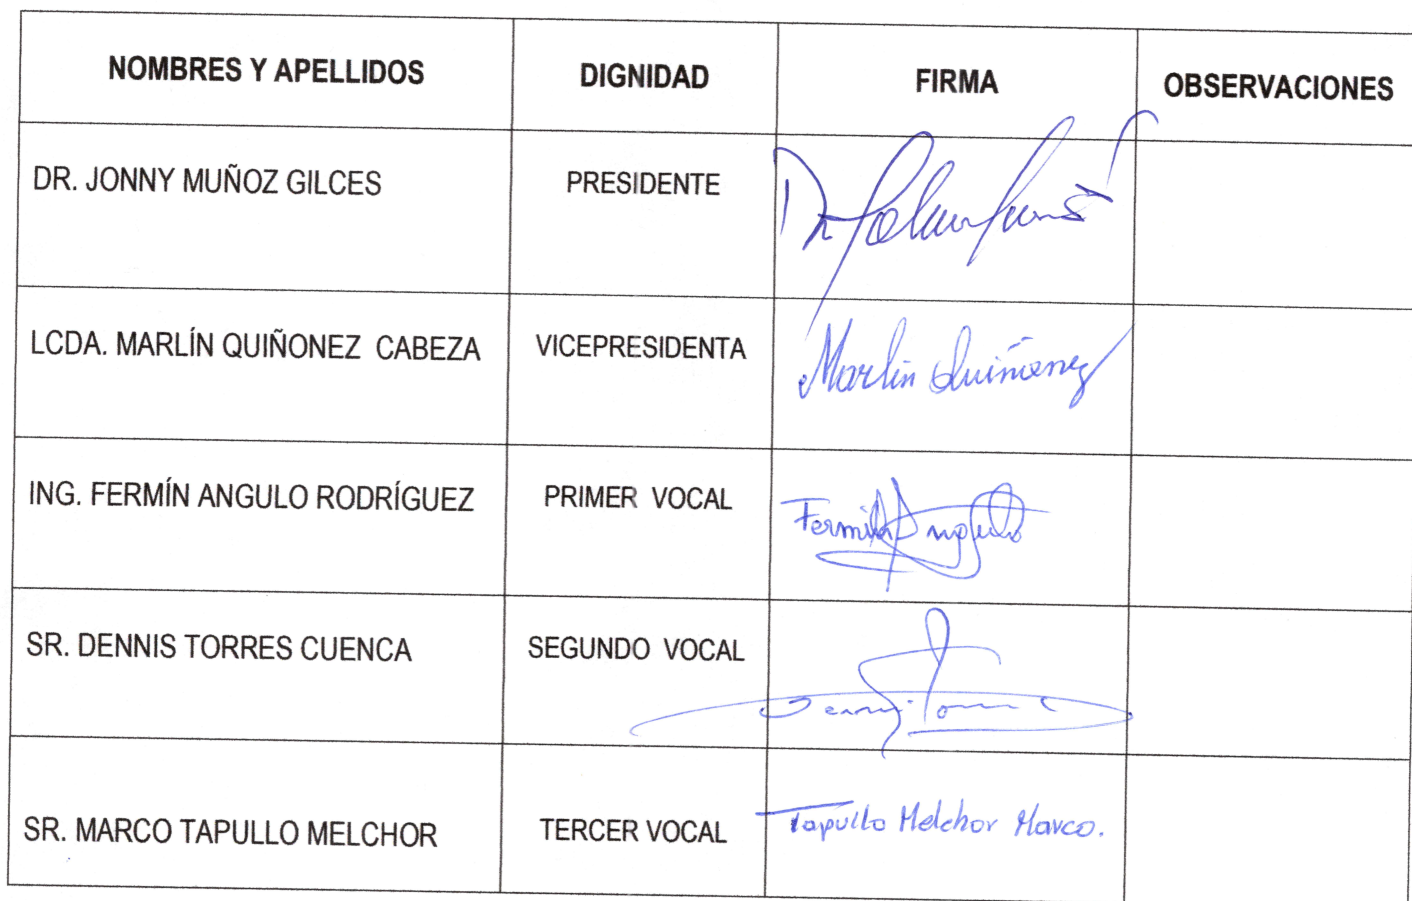 NOMBRES Y APELLIDOS DIGNIDAD FIRMA OBSERVACIONES
DR. JONNY MUÑOZ GILCES PRESIDENTE Dr
LCDA. MARLÍN QUIÑONEZ CABEZA VICEPRESIDENTA Marlin Quiñonez
ING. FERMÍN ANGULO RODRÍGUEZ PRIMER VOCAL Fermin Angulo
SR. DENNIS TORRES CUENCA SEGUNDO VOCAL
SR. MARCO TAPULLO MELCHOR TERCER VOCAL Tapullo Melchor Marco.